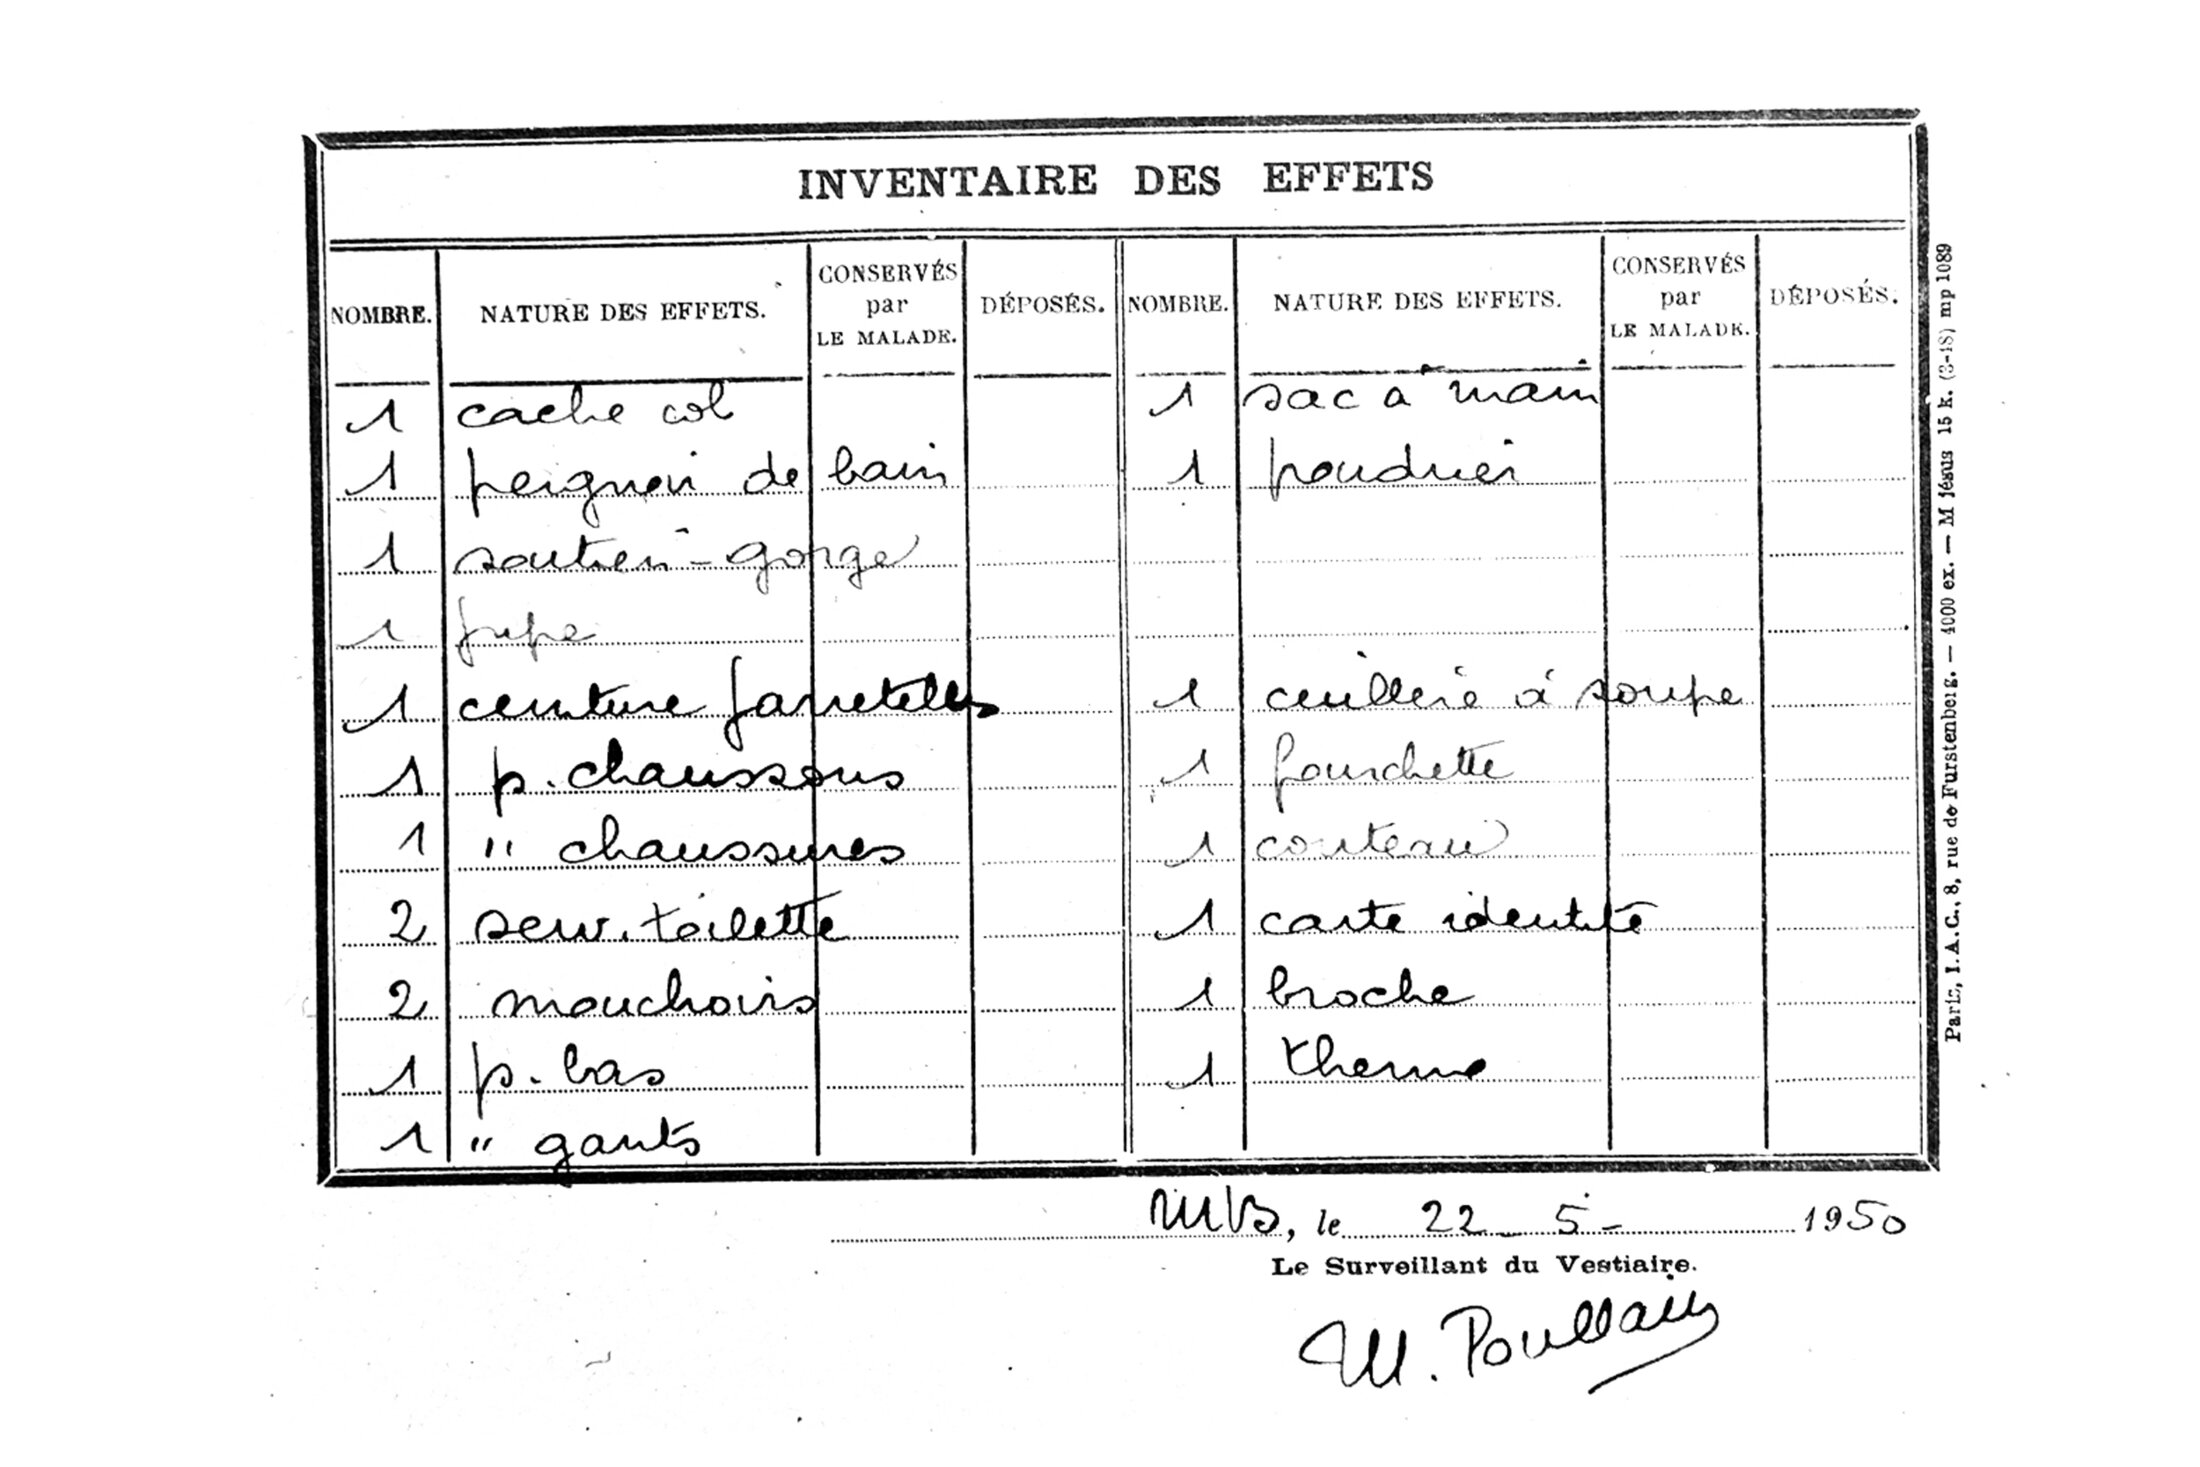 INVENTAIRE DES EFFETS
NOMBRE. NATURE DES EFFETS. CONSERVÉS par LE MALADE. DÉPOSÉS. NOMBRE. NATURE DES EFFETS. CONSERVÉS par LE MALADE. DÉPOSÉS.
1 cache col
1 peignoir de bain
1 soutien-gorge
1 jupe
1 ceinture jarretelles
1 p. chaussons
1 " chaussures
2 serv. toilette
2 mouchoirs
1 p. bas
1 " gants
1 sac à main
1 poudrier
1 cuillère à soupe
1 fourchette
1 couteau
1 carte identité
1 broche
1 thermo
, le 22 - 5 - 1950
Le Surveillant du Vestiaire.
M. Poullain
Paris, I.A.C., 8, rue de Furstenberg. — 4000 ex. — M Jésus 15 k. (3-48) mp 1089